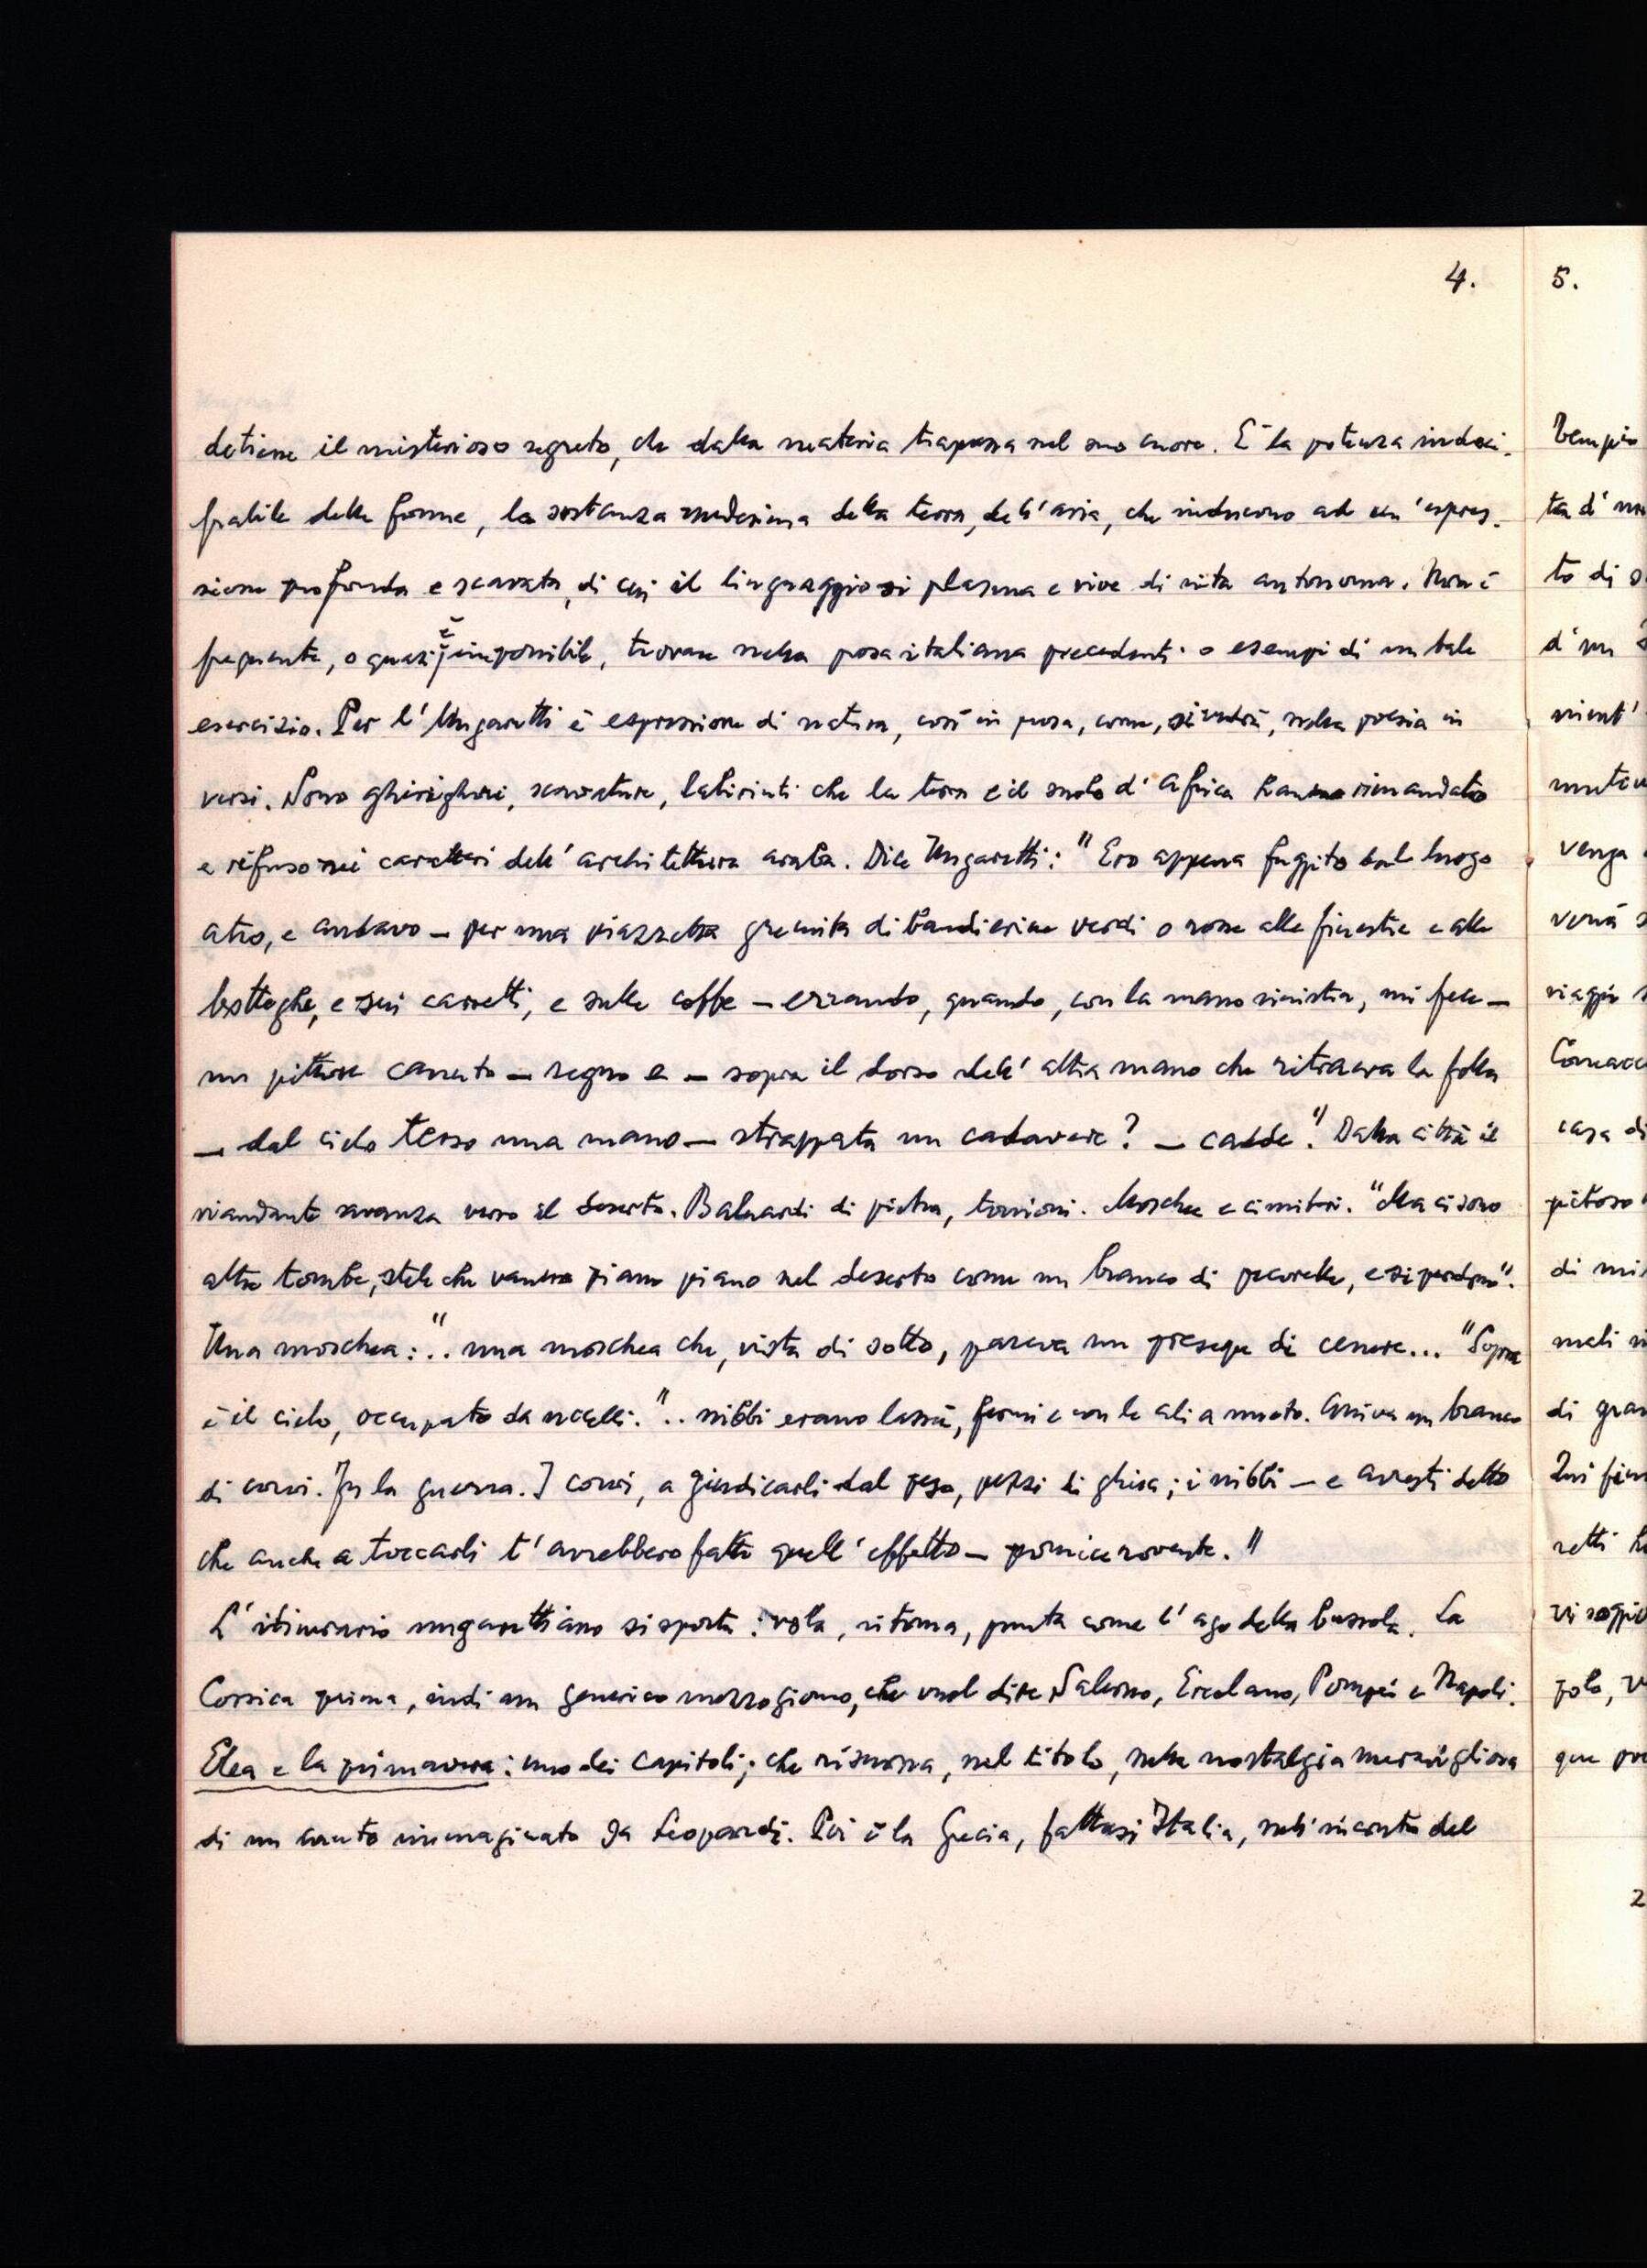 4.
detiene il misterioso segreto, che dalla materia trapassa nel suo cuore. E' la potenza indeci-
frabile delle forme, la sostanza medesima della terra, dell'aria, che inducono ad un'espres-
sione profonda e scavata, di cui il linguaggio si plasma e vive di vita autonoma. Non è
frequente, o quasi è impossibile, trovare nella prosa italiana precedenti o esempi di un tale
esercizio. Per l'Ungaretti è espressione di natura, così in prosa, come, si vedrà, nella poesia in
versi. Sono ghirighori, scavature, labirinti che la terra e il suolo d'Africa hanno rimandato
e rifuso nei caratteri dell'architettura araba. Dice Ungaretti: "Ero appena fuggito dal luogo
atro, e andavo _ per una piazzetta gremita di bandierine verdi o rosse alle finestre e alle
botteghe, e sui carretti, e sulle coffe _ errando, quando, con la mano sinistra, mi fece _
un pittore canuto _ segno e _ sopra il dorso dell'altra mano che ritraeva la folla
_ dal cielo terso una mano _ strappata un cadavere? _ cadde." Dalla città il
viandante avanza verso il deserto. Baluardi di pietra, torrioni. Moschee e cimiteri. "Ma ci sono
altre tombe, stele che vanno piano piano nel deserto come un branco di pecorelle, e si perdono".
Una moschea: ".. una moschea che, vista di sotto, pareva un presepe di cenere... "Sopra
è il cielo, occupato da uccelli. ".. nibbi erano lassù, fermi e con le ali a nuoto. Arriva un branco
di corvi. Fu la guerra. I corvi, a giudicarli dal peso, pezzi di ghisa; i nibbi _ e avresti detto
che anche a toccarli t'avrebbero fatto quell'effetto _ pomice rovente."
L'itinerario ungarettiano si sposta: vola, ritorna, punta come l'ago della bussola. La
Corsica prima, indi un generico mezzogiorno, che vuol dire Salerno, Ercolano, Pompei e Napoli.
Elea e la primavera: uno dei capitoli; che risuona, nel titolo, nella nostalgia meravigliosa
di un canto immaginato da Leopardi. Poi è la Grecia, fattasi Italia, nell'incanto del
5.
Tempio
to di
d'un
venga
verrà
viaggio
casa di
pietoso
di
di
retti
polo,
que
2